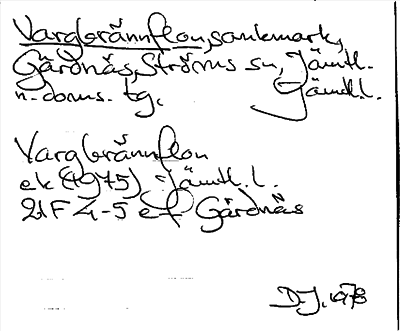 Vargbrännflon, sankmark,
Gärdnäs, Ströms sn, Jämtl.
n. doms. tg. Jämtl.l.
Vargbrännflon
ek (1975) Jämtl. l.
21F 4-5 e f Gärdnäs
D.J. 1978